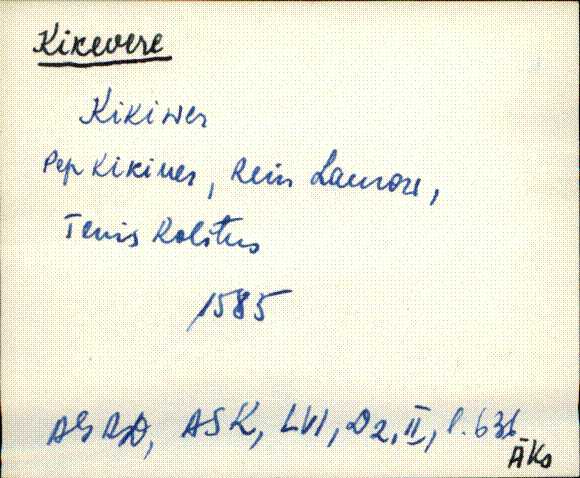 Kikevere
Kikiwer
Pep Kikiuer, Rein Laurose,
Tenis Rolstus
1585
AGAD, ASK, LVI, D2, II, l. 636
ÄKo